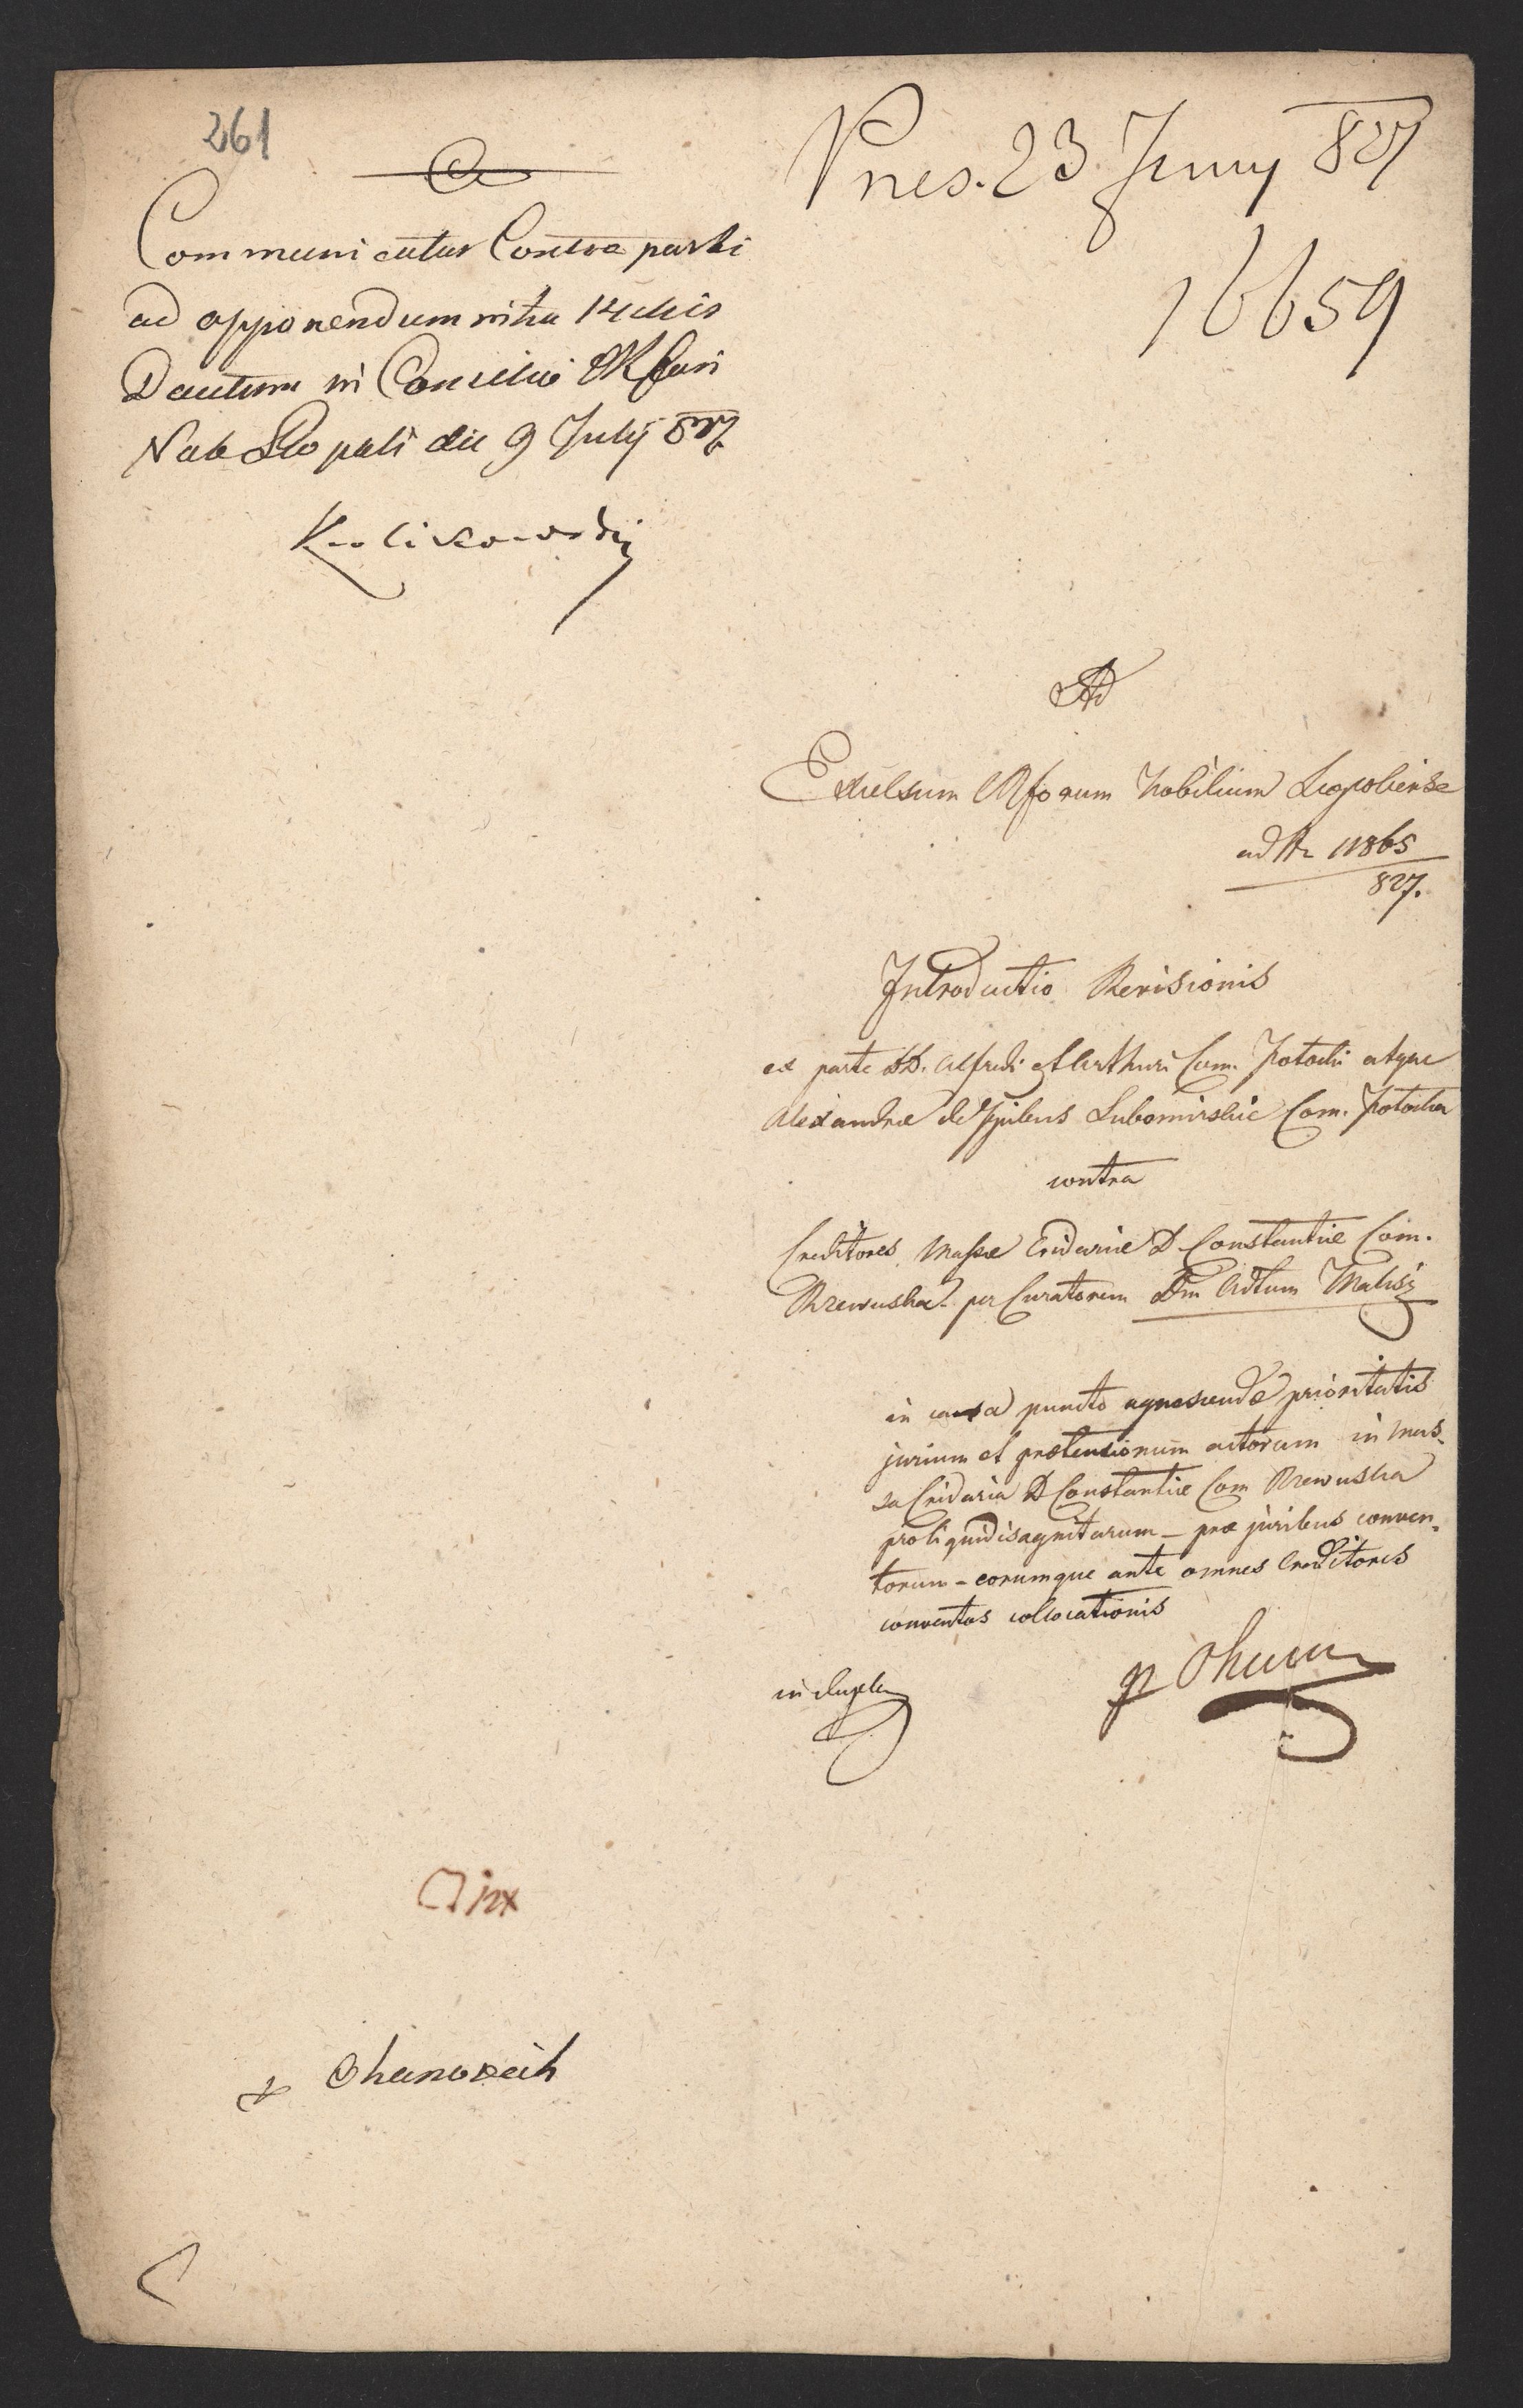 261
Communicatur Contra parti
ad opponendum intra 14 dies
Datum in Consilio CR fori
Nob Leopoli die 9 July 827
Pnes. 23 Juny 827
16659
Ad
Excelsum CR forum Nobilium Leopoliense
ad Nr 11865
827.
Introductio Revisionis
ex parte DD. Alfredi et Arthuri Com. Potocki atque
Alexandrae de Ppibus Lubomirskie Com. Potocka
contra
Creditores Massae Cridariae D Constantiae Com.
Rzewuska per Curatorem Dm Adtum Malisz
in causa puncto agnoscendae prioritatis
jurium et praetensionum actorum in mas-
sa Cridaria D Constantiae Com Rzewuska
pro liquidis agnitarum - prae juribus conven-
torum - eorumque ante omnes Creditores
conventos collocationis
in duplo